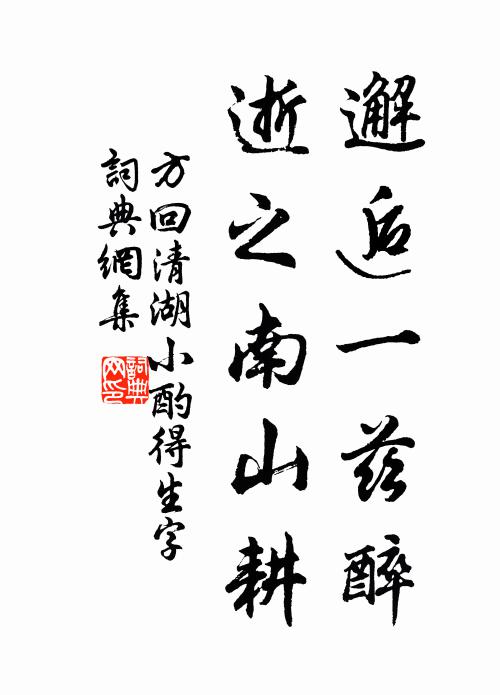 邂逅一茲醉
逝之南山耕
方回清湖小酌得生字
詞典網集
詞典網印